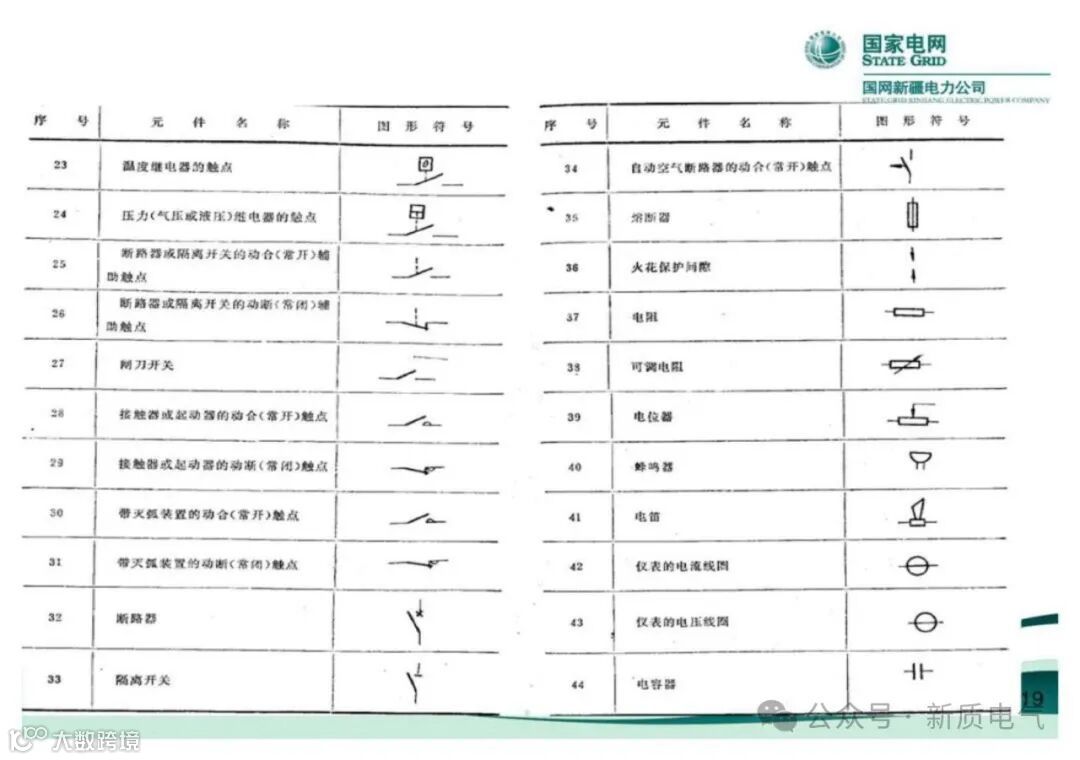 国家电网
STATE GRID
国网新疆电力公司
STATE GRID XINJIANG ELECTRIC POWER COMPANY
序 号 元 件 名 称 图 形 符 号
23 温度继电器的触点
24 压力(气压或液压)继电器的触点
25 断路器或隔离开关的动合(常开)辅
助触点
26 断路器或隔离开关的动断(常闭)辅
助触点
27 闸刀开关
28 接触器或起动器的动合(常开)触点
29 接触器或起动器的动断(常闭)触点
30 带灭弧装置的动合(常开)触点
31 带灭弧装置的动断(常闭)触点
32 断路器
33 隔离开关
序 号 元 件 名 称 图 形 符 号
34 自动空气断路器的动合(常开)触点
35 熔断器
36 火花保护间隙
37 电阻
38 可调电阻
39 电位器
40 蜂鸣器
41 电笛
42 仪表的电流线圈
43 仪表的电压线圈
44 电容器
19
公众号·新质电气
10100 大数跨境